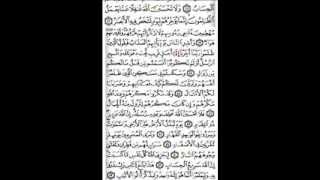 ٱلْحِسَابُ وَلَا تَحْسَبَنَّ ٱللَّهَ غَٰفِلًا عَمَّا يَعْمَلُ
ٱلظَّٰلِمُونَ إِنَّمَا يُؤَخِّرُهُمْ لِيَوْمٍ تَشْخَصُ فِيهِ ٱلْأَبْصَٰرُ
مُهْطِعِينَ مُقْنِعِى رُءُوسِهِمْ لَا يَرْتَدُّ إِلَيْهِمْ طَرْفُهُمْ وَأَفْـِٔدَتُهُمْ
هَوَآءٌ وَأَنذِرِ ٱلنَّاسَ يَوْمَ يَأْتِيهِمُ ٱلْعَذَابُ فَيَقُولُ ٱلَّذِينَ
ظَلَمُوا۟ رَبَّنَآ أَخِّرْنَآ إِلَىٰٓ أَجَلٍ قَرِيبٍ نُّجِبْ دَعْوَتَكَ وَنَتَّبِعِ
ٱلرُّسُلَ أَوَلَمْ تَكُونُوٓا۟ أَقْسَمْتُم مِّن قَبْلُ مَا لَكُم
مِّن زَوَالٍ وَسَكَنتُمْ فِى مَسَٰكِنِ ٱلَّذِينَ ظَلَمُوٓا۟
أَنفُسَهُمْ وَتَبَيَّنَ لَكُمْ كَيْفَ فَعَلْنَا بِهِمْ وَضَرَبْنَا
لَكُمُ ٱلْأَمْثَالَ وَقَدْ مَكَرُوا۟ مَكْرَهُمْ وَعِندَ ٱللَّهِ
مَكْرُهُمْ وَإِن كَانَ مَكْرُهُمْ لِتَزُولَ مِنْهُ ٱلْجِبَالُ
فَلَا تَحْسَبَنَّ ٱللَّهَ مُخْلِفَ وَعْدِهِۦ رُسُلَهُۥٓ إِنَّ ٱللَّهَ عَزِيزٌ
ذُو ٱنتِقَامٍ يَوْمَ تُبَدَّلُ ٱلْأَرْضُ غَيْرَ ٱلْأَرْضِ وَٱلسَّمَٰوَٰتُ
وَبَرَزُوا۟ لِلَّهِ ٱلْوَٰحِدِ ٱلْقَهَّارِ وَتَرَى ٱلْمُجْرِمِينَ يَوْمَئِذٍ
مُّقَرَّنِينَ فِى ٱلْأَصْفَادِ سَرَابِيلُهُم مِّن قَطِرَانٍ وَتَغْشَىٰ
وُجُوهَهُمُ ٱلنَّارُ لِيَجْزِىَ ٱللَّهُ كُلَّ نَفْسٍ مَّا كَسَبَتْ
إِنَّ ٱللَّهَ سَرِيعُ ٱلْحِسَابِ هَٰذَا بَلَٰغٌ لِّلنَّاسِ وَلِيُنذَرُوا۟
بِهِۦ وَلِيَعْلَمُوٓا۟ أَنَّمَا هُوَ إِلَٰهٌ وَٰحِدٌ وَلِيَذَّكَّرَ أُو۟لُوا۟ ٱلْأَلْبَٰبِ